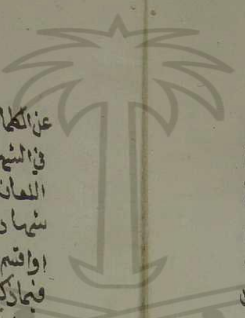 عن الكلا
في الشها
اللعان
شهاد
او اقسم
فيما ذكر